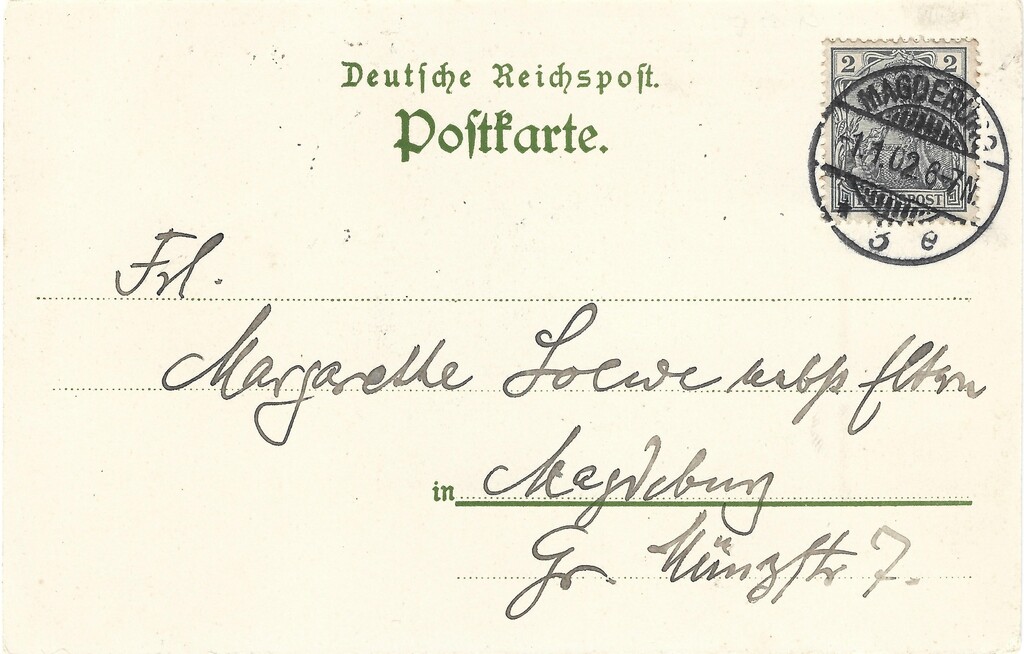 Deutsche Reichspost.
Postkarte.
2 2
REICHSPOST
MAGDEBURG
1.1.02.6-7N.
* 3 e
Frl.
Margarethe Loewe nebst Eltern
in Magdeburg
Gr. Münzstr 7.